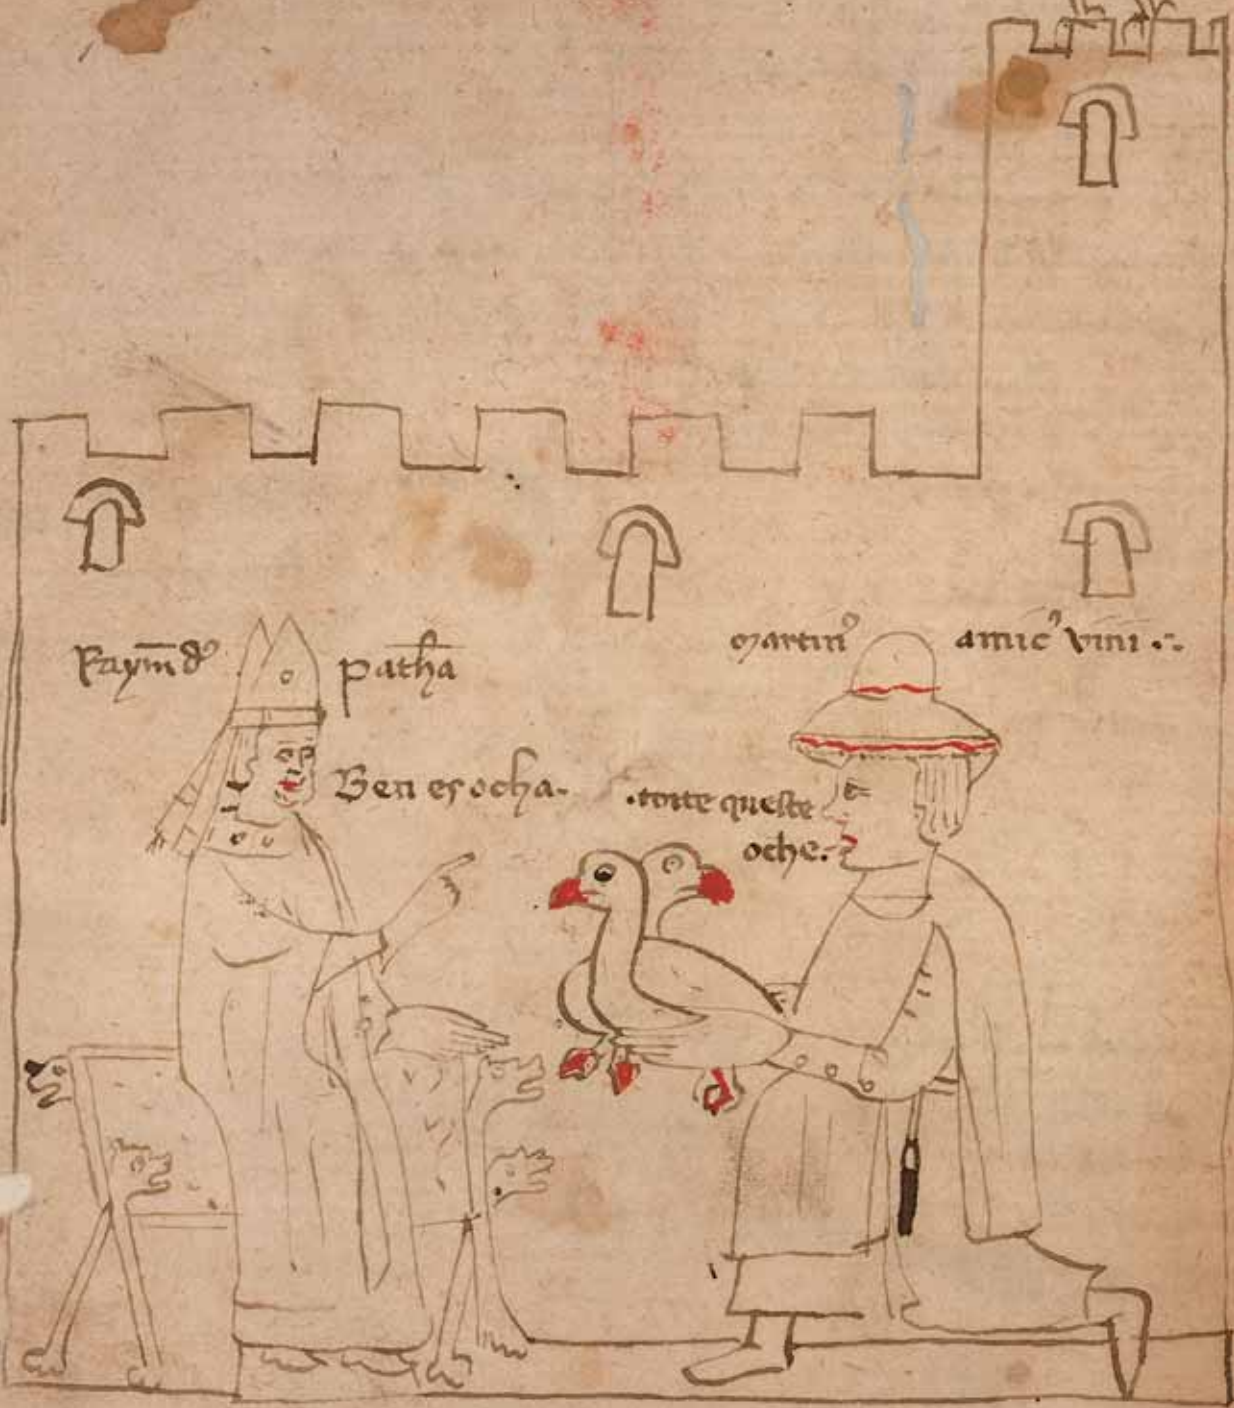 Raymūdꝰ
patħa
martinꝰ
amicꝰ vini
Ben es ocha.
.toite queste
oche.